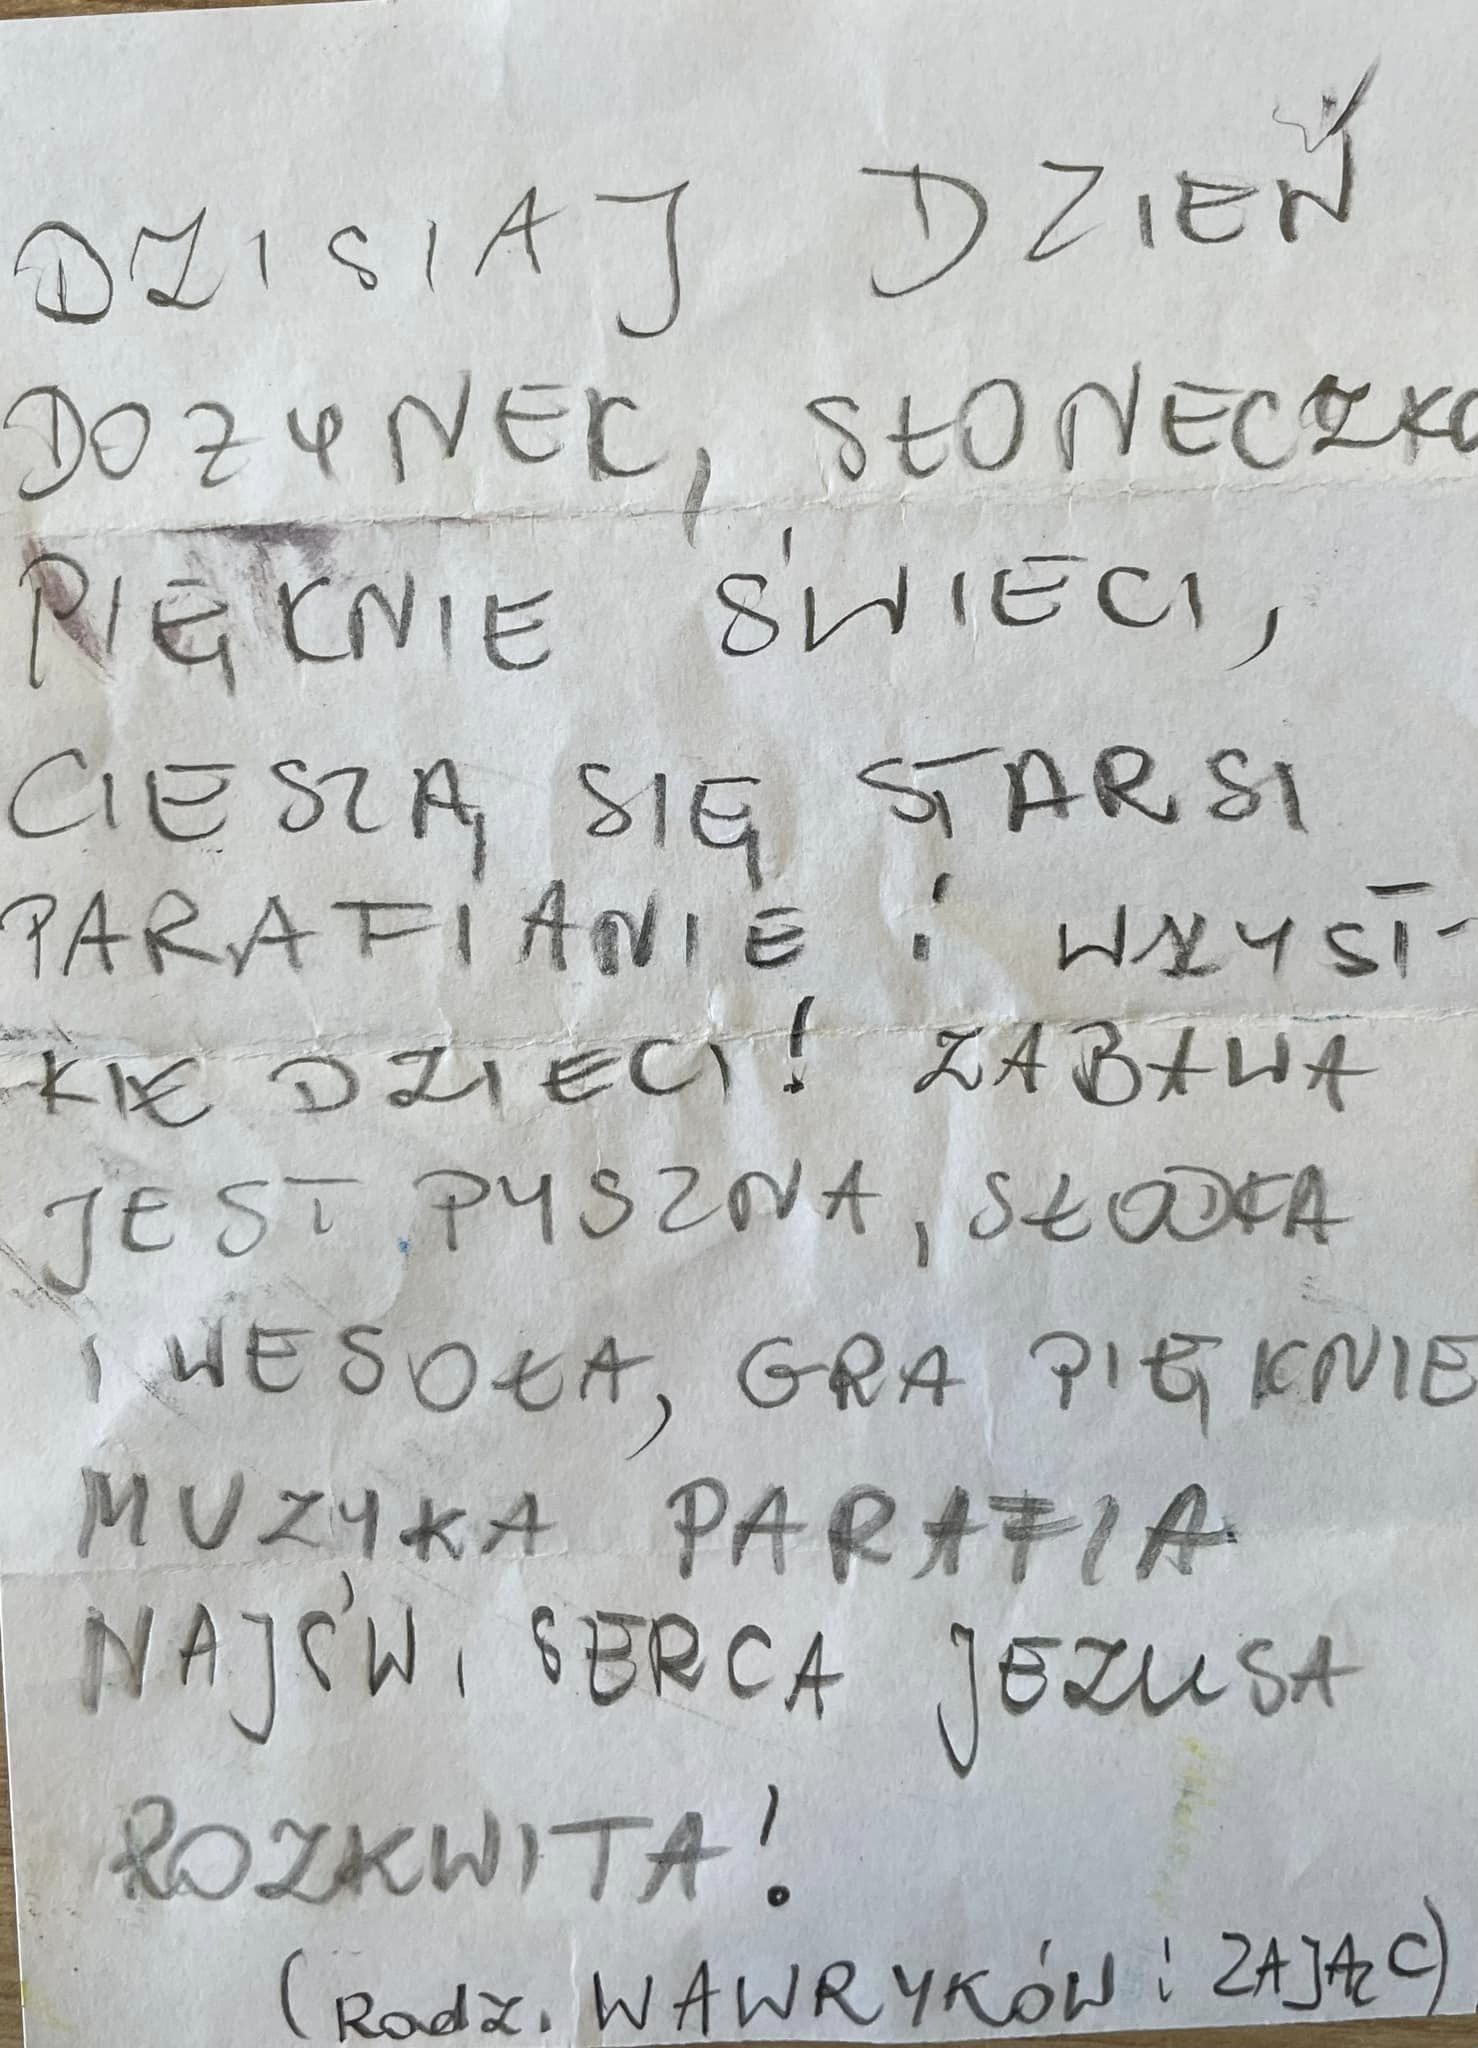 DZISIAJ DZIEŃ
DOZYNEK, SŁONECZKO
PIĘKNIE ŚWIECI,
CIESZĄ SIĘ STARSI
PARAFIANIE i WSZYST-
KIE DZIECI! ZABAWA
JEST PYSZNA, SŁODKA
I WESOŁA, GRA PIĘKNIE
MUZYKA PARAFIA
NAJŚW. SERCA JEZUSA
ROZKWITA!
(Rodz. WAWRYKÓW i ZAJĄC)